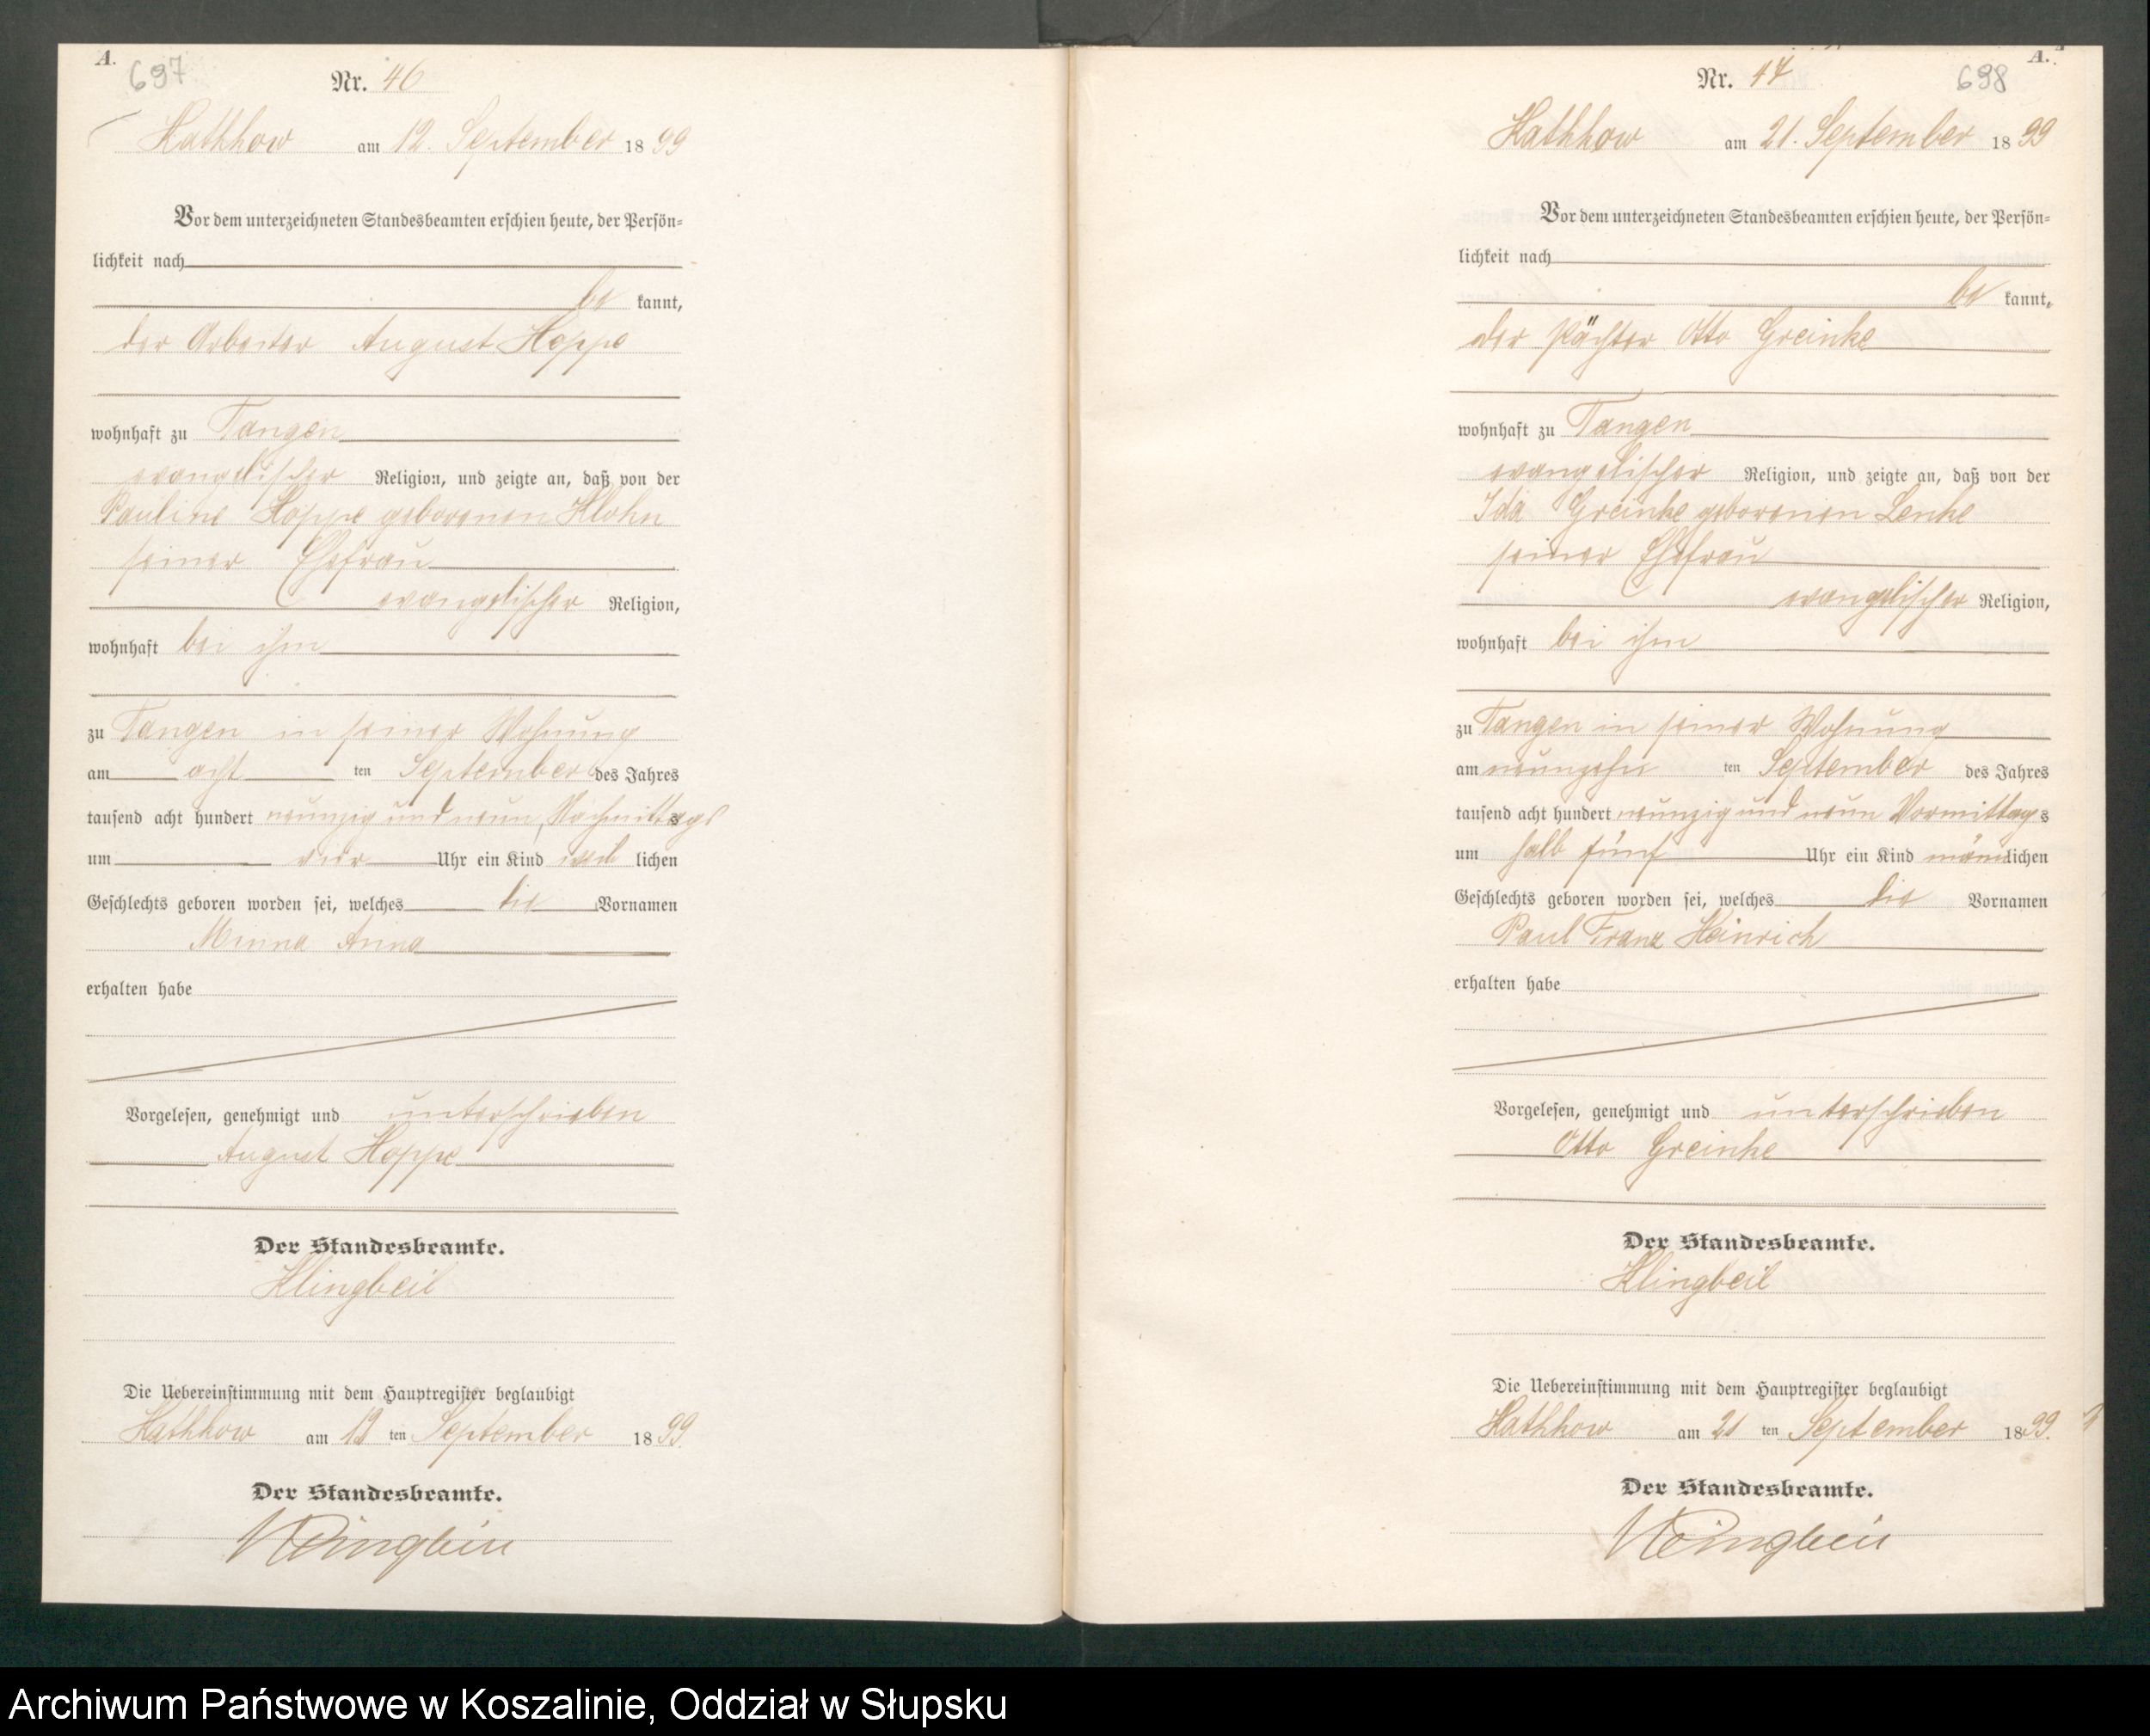 A.
697
Nr. 46
Kathkow am 12. September 1899
Vor dem unterzeichneten Standesbeamten erschien heute, der Persön-
lichkeit nach
be kannt,
der Arbeiter August Hoppe
wohnhaft zu Tangen
evangelischer Religion, und zeigte an, daß von der
Pauline Hoppe geborenen Klohn
seiner Ehefrau
evangelischer Religion,
wohnhaft bei ihm
zu Tangen in seiner Wohnung
am acht ten September des Jahres
tausend acht hundert neunzig und neun Nachmittags
um vier Uhr ein Kind weib lichen
Geschlechts geboren worden sei, welches die Vornamen
Minna Anna
erhalten habe
Vorgelesen, genehmigt und unterschrieben
August Hoppe
Der Standesbeamte.
Klingbeil
Die Uebereinstimmung mit dem Hauptregister beglaubigt
Kathkow am 12 ten September 1899.
Der Standesbeamte.
Klingbeil
A.
698
Nr. 47
Kathkow am 21. September 1899
Vor dem unterzeichneten Standesbeamten erschien heute, der Persön-
lichkeit nach
be kannt,
der Pächter Otto Greinke
wohnhaft zu Tangen
evangelischer Religion, und zeigte an, daß von der
Ida Greinke geborenen Lenke
seiner Ehefrau
evangelischer Religion,
wohnhaft bei ihm
zu Tangen in seiner Wohnung
am neunzehn ten September des Jahres
tausend acht hundert neunzig und neun Vormittags
um halb fünf Uhr ein Kind männlichen
Geschlechts geboren worden sei, welches die Vornamen
Paul Franz Heinrich
erhalten habe
Vorgelesen, genehmigt und unterschrieben
Otto Greinke
Der Standesbeamte.
Klingbeil
Die Uebereinstimmung mit dem Hauptregister beglaubigt
Kathkow am 21 ten September 1899.
Der Standesbeamte.
Klingbeil
Archiwum Państwowe w Koszalinie, Oddział w Słupsku